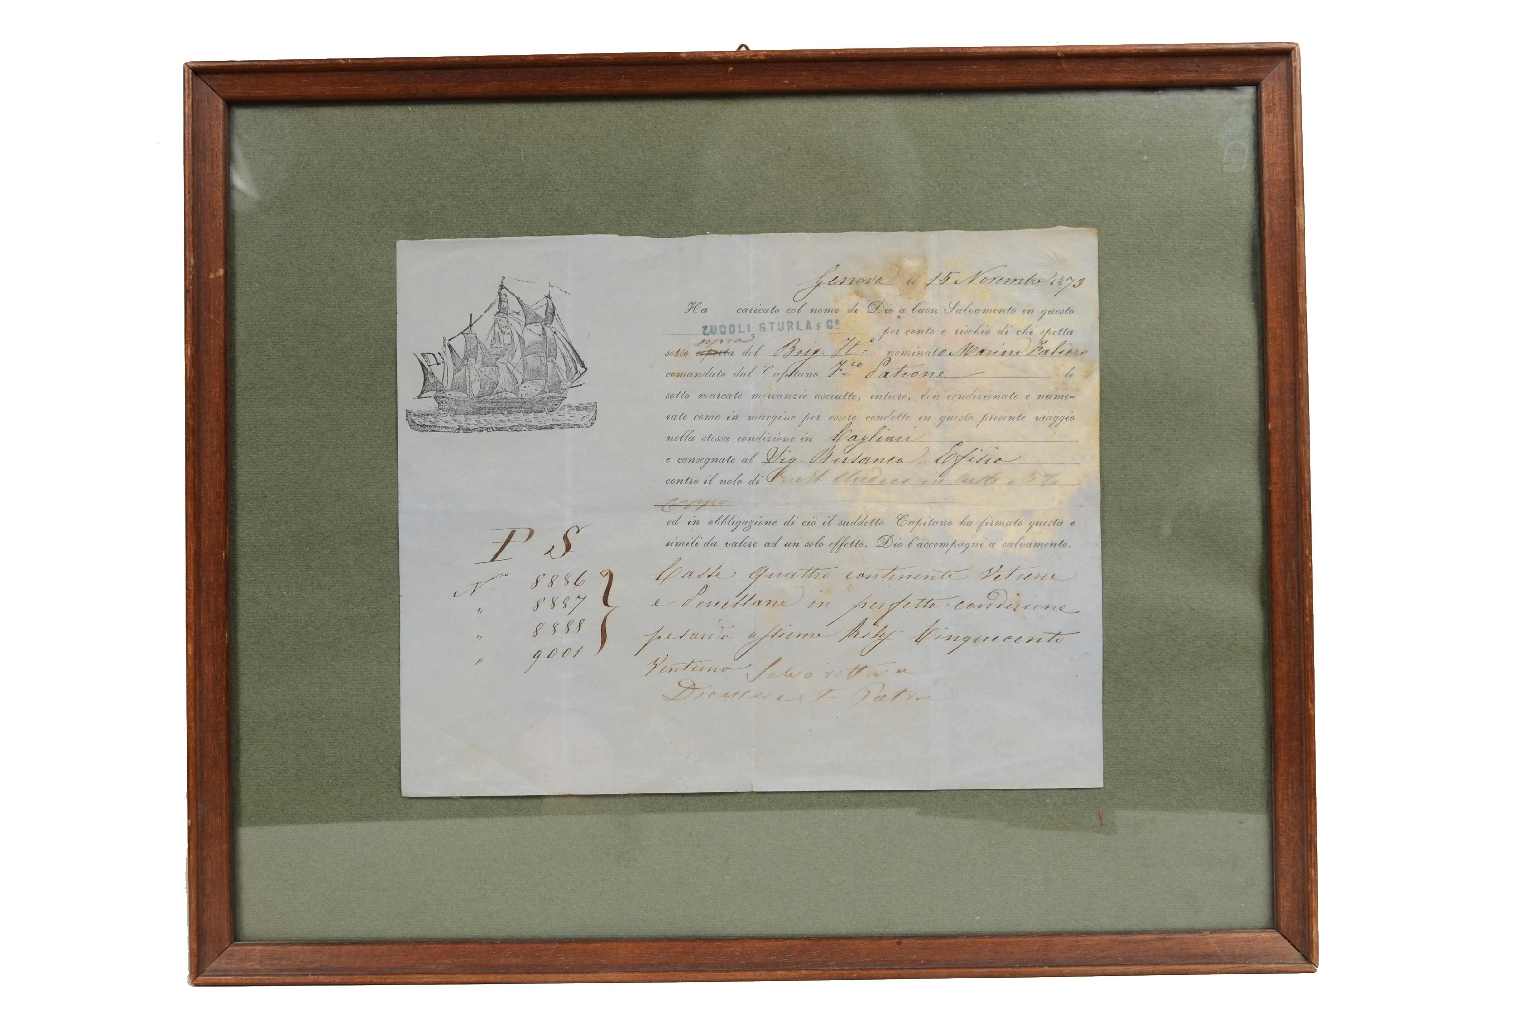 Genova li 15 Novembre 1873
Ha caricato col nome di Dio a buon Salvamento in questo
ZUCOLI STURLA E Cº per conto e rischio di chi spetta
sopra
sotto coperta del Brig. It.º nominato Marin Faliero
comandato dal Capitano F.co Patrone le
sotto marcate mercanzie asciutte, intiere, ben condizionate e nume-
rate come in margine per essere condotte in questo presente viaggio
nella stessa condizione in Cagliari
e consegnate al Sig. Efisio
contro il nolo di
Cappa
ed in obbligazione di ciò il suddetto Capitano ha firmato questa e
simili da valere ad un solo effetto. Dio l'accompagni a salvamento.
P S
Nº 8886
" 8887
" 8888
" 9001
Casse quattro contenente Vetrerie
e Porcellane in perfetta condizione
pesando assieme Kilg Cinquecento
Ventuno Salvo rottura
Dice essere F. Patrone